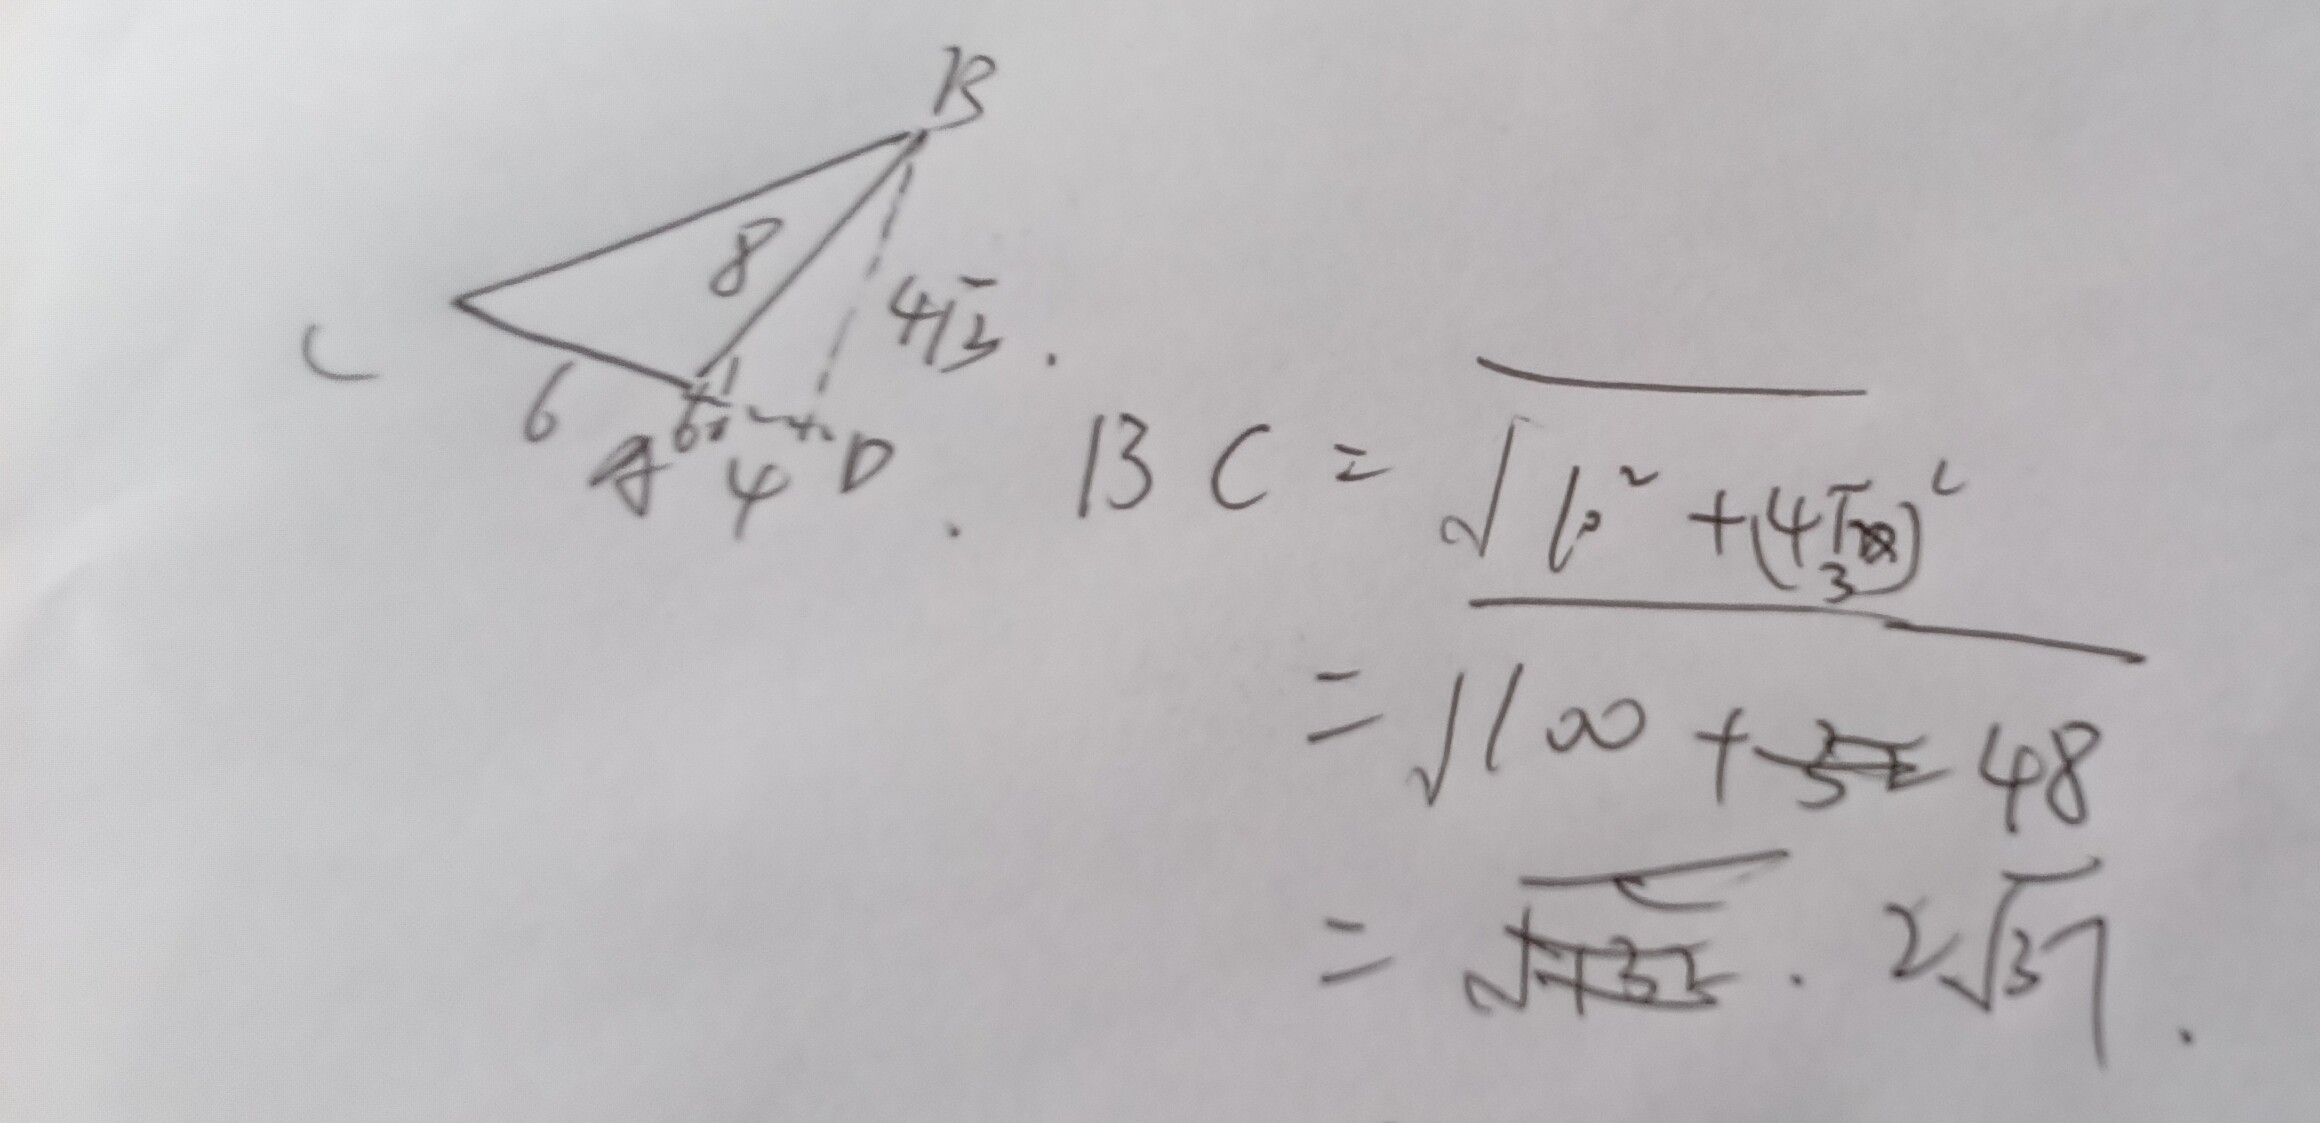 B
8
4√3.
C
6
A 60° D
4
BC = √10² + (4√3)²
= √100 + 48
= 2√37.